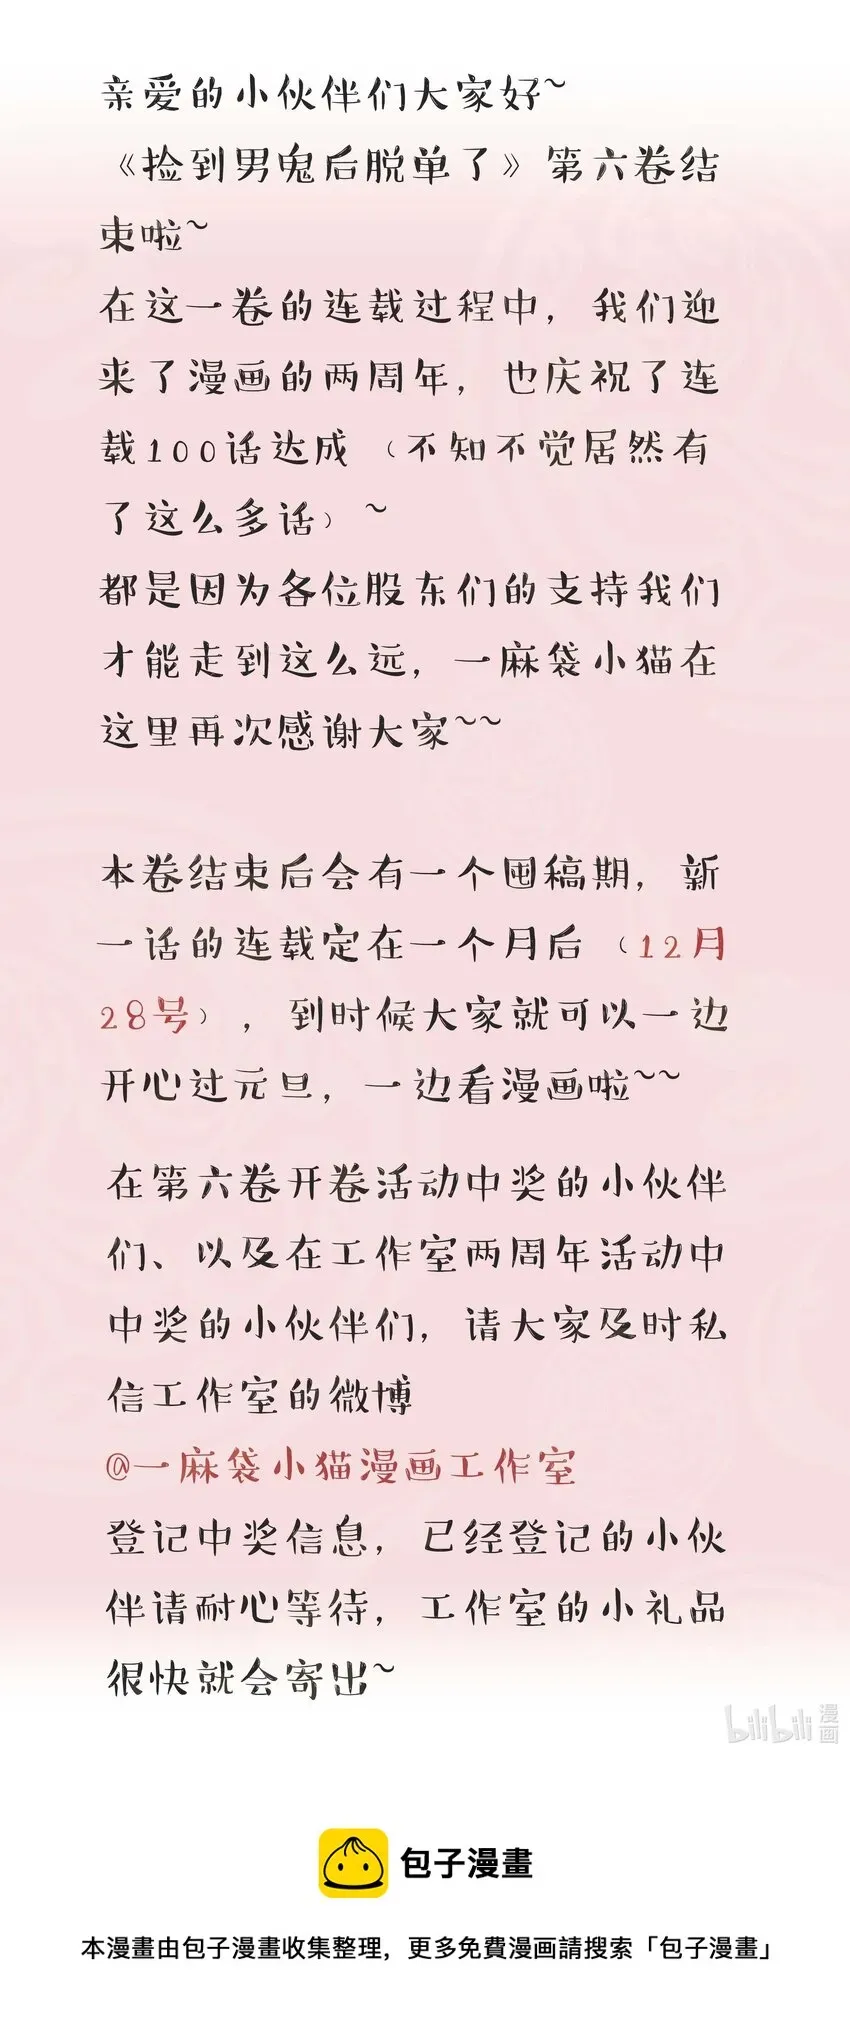 亲爱的小伙伴们大家好~
《捡到男鬼后脱单了》第六卷结
束啦~
在这一卷的连载过程中，我们迎
来了漫画的两周年，也庆祝了连
载100话达成（不知不觉居然有
了这么多话）~
都是因为各位股东们的支持我们
才能走到这么远，一麻袋小猫在
这里再次感谢大家~~
本卷结束后会有一个囤稿期，新
一话的连载定在一个月后（12月
28号），到时候大家就可以一边
开心过元旦，一边看漫画啦~~
在第六卷开卷活动中奖的小伙伴
们、以及在工作室两周年活动中
中奖的小伙伴们，请大家及时私
信工作室的微博
@一麻袋小猫漫画工作室
登记中奖信息，已经登记的小伙
伴请耐心等待，工作室的小礼品
很快就会寄出~
bilibili 漫画
包子漫畫
本漫畫由包子漫畫收集整理，更多免費漫画請搜索「包子漫畫」